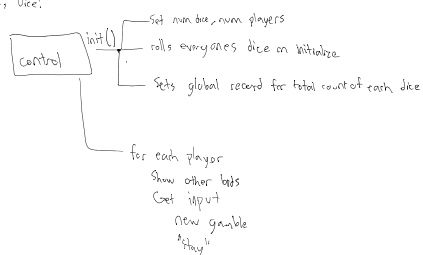 , Dice!
Set num dice, num players
init()
rolls everyones dice on initialize
control
Sets global record for total count of each dice
for each player
Show other bids
Get input
new gamble
"Stay"